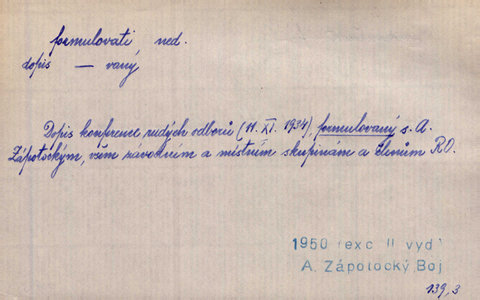 formulovati ned.
dopis — vaný
Dopis konference rudých odborů (11. XI. 1934), formulovaný s. A.
Zápotockým, všem závodním a místním skupinám a členům RO.
1950 (exc II vyd)
A. Zápotocký, Boj
139, 3